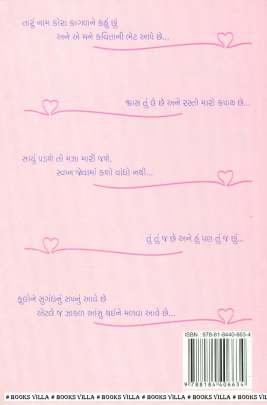 તારું નામ કોરા કાગળને કહું છું
અને એ મને કવિતાની ભેટ આપે છે...
શ્વાસ તું લે છે અને રસ્તો મારી કપાય છે...
સાચું પડશે તો મઝા મારી જશે,
સ્વપ્ન જોવામાં કશો વાંધો નથી...
તું તું જ છે અને હું પણ તું જ છું...
ફૂલોને સુગંધનું સપનું આવે છે
એટલે જ ઝાકળ આંસુ થઈને મળવા આવે છે...
ISBN : 978-81-8440-663-4
9 788184 406634
# BOOKS VILLA # BOOKS VILLA # BOOKS VILLA # BOOKS VILLA # BOOKS VILLA